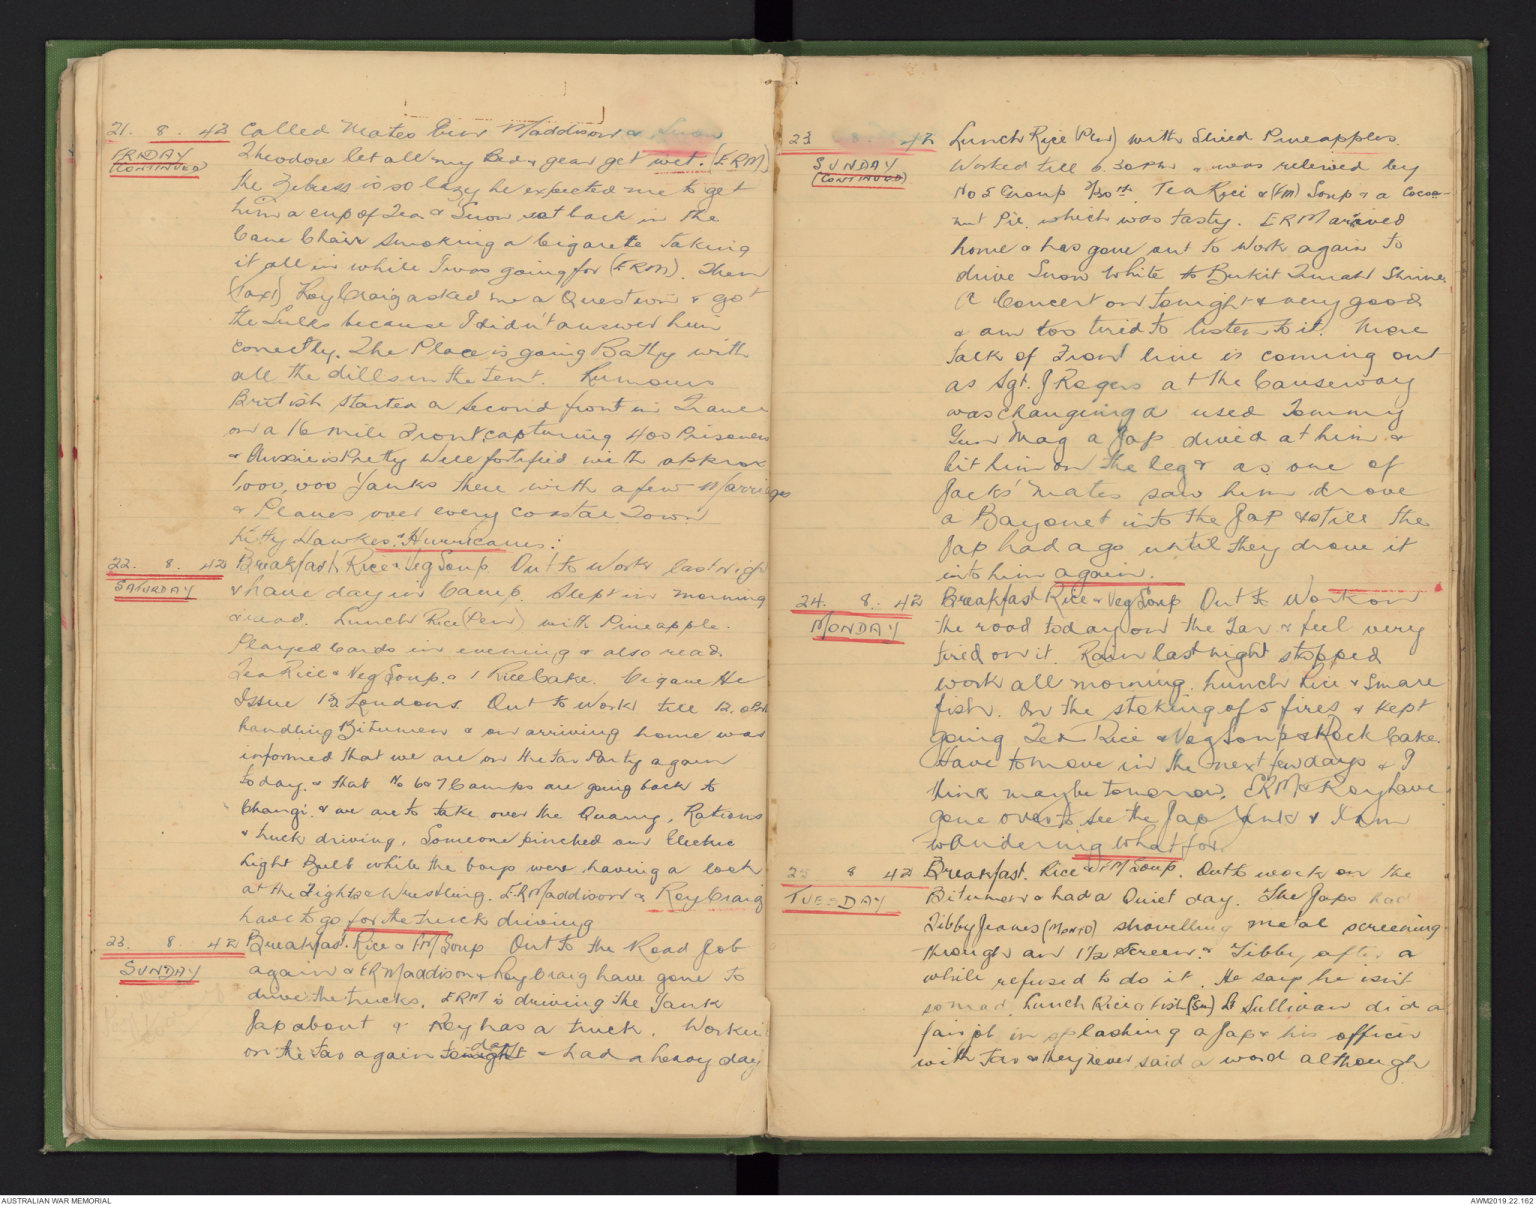 21. 8. 42 Called Mates Ern Maddison & Snow
FRIDAY Theodore let all my Bed & gear get wet. (ERM)
(CONTINUED) the Zebress is so lazy he expected me to get
him a cup of Tea & Snow sat back in the
Cane Chair Smoking a Cigarete taking
it all in while I was going for (ERM). Then
(Taxi) Roy Craig asked me a Question & got
the Sulks because I didn't answer him
correctly. The Place is going Batty with
all the dills in the tent. Rumours
British started a Second front in France
on a 16 mile Front capturing 400 Prisoners
& Aussie is Pretty Well fortified with approx
1,000,000 Yanks there with a few Marriages
& Planes over every Coastal Town
Kitty Hawkes & Hurricanes.
22. 8. 42 Breakfast Rice & Veg Soup Out to Work last nigh
SATURDAY & have day in Camp. Slept in morning
& read. Lunch Rice (Pen) with Pineapple.
Played Cards in evening & also read.
Tea Rice & Veg Soup. & 1 Rice Cake. Cigarette
Issue 1½ Loudons. Out to Work till 12.0
handling Bitumen & on arriving home was
informed that we are on the Tar Party again
today. & that No 6 or 7 Camps are going back to
Changi. & we are to take over the Quarry, Rations
& truck driving. Someone pinched our Electric
Light Bulb while the boys were having a look
at the Fights & Wrestling. E.R.Maddison & Roy Craig
have to go for the truck driving
23. 8. 42 Breakfast. Rice & (M) Soup Out to the Road Job
SUNDAY again & ERMaddison & Roy Craig have gone to
drive the trucks. ERM is driving the Yank
Jap about & Roy has a truck. Workin
on the Tar again today & had a heavy day
23 8. 42 Lunch Rice (Pen) with Sliced Pineapples
SUNDAY Worked till 6.30PM & was relieved by
(CONTINUED) No 5 Group Tea Rice & (VM) Soup & a Cocoa-
nut Pie. which was tasty. ERM arrived
home & has gone out to Work again to
drive Snow White to Bukit Timah Shrine
A Concert on tonight & very good
& am too tired to listen to it. More
talk of Front line is coming out
as Sgt. J Rogers at the Causeway
was changing a used Tommy
Gun Mag a Jap dived at him &
bit him on the leg & as one of
Jacks' mates saw him drove
a Bayonet into the Jap & still the
Jap had a go until they drove it
into him again.
24. 8. 42 Breakfast Rice & Veg Soup Out to Work on
MONDAY the road today on the Tar & feel very
tired on it. Rain last night stopped
work all morning. Lunch Rice & Small
fish. On the stoking of 5 fires & kept
going Tea Rice & Veg Soup & Rock Cake.
Have to move in the next few days & I
think maybe tomorrow. ERM & Roy have
gone over to see the Jap Yank & I am
wondering what for.
25 8 42 Breakfast. Rice & (VM) Soup. Out to work on the
TUESDAY Bitumen & had a Quiet day. The Japs had
Tibby Jeanes (MONTO) shovelling metal screening
through an 1½ Screen & Tibby after a
while refused to do it. He says he isn't
so mad. Lunch Rice & Fish (Pen) Lt Sullivan did a
fair job in splashing a Jap & his officer
with Tar & they never said a word although
AUSTRALIAN WAR MEMORIAL
AWM2019.22.162